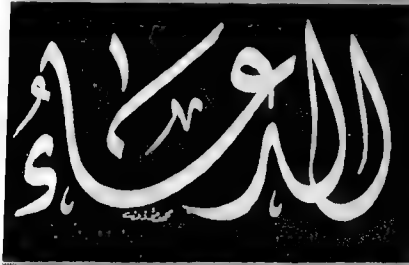 الدعاءُ